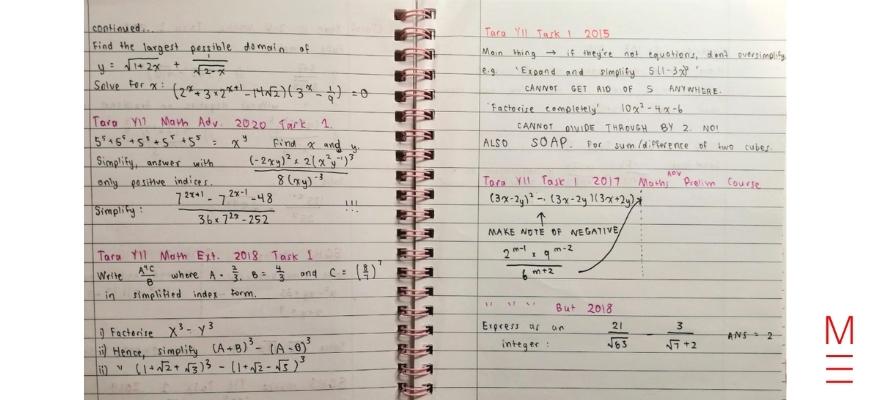 continued...
Find the largest possible domain of
y = √(1+2x) + 1/√(2-x)
Solve for x: (2^x + 3×2^(x+1) - 14√2)(3^x - 1/9) = 0
Tara Y11 Math Adv. 2020 Task 1.
5^5+5^5+5^5+5^5+5^5 = x^y Find x and y.
Simplify, answer with (-2xy)^2 × 2(x^2y^-1)^3 / 8(xy)^-3
only positive indices.
Simplify: (7^(2x+1) - 7^(2x-1) - 48) / (36×7^(2x) - 252) !!!
Tara Y11 Math Ext. 2018 Task 1
Write A^4C/B where A = 2/3, B = 4/3 and C = (8/7)^7
in simplified index form.
i) Factorise X^3 - Y^3
ii) Hence, simplify (A+B)^3 - (A-B)^3
ii) " (1+√2+√3)^3 - (1+√2-√3)^3
Tara Y11 Task 1 2015
Main thing → if they're not equations, don't oversimplify
e.g. 'Expand and simplify 5(1-3x)^2'
CANNOT GET RID OF 5 ANYWHERE.
'Factorise completely' 10x^2-4x-6
CANNOT DIVIDE THROUGH BY 2. NO!
ALSO SOAP. For sum/difference of two cubes.
Tara Y11 Task 1 2017 Maths Adv Prelim Course
(3x-2y)^2 - (3x-2y)(3x+2y)
MAKE NOTE OF NEGATIVE
2^(m-1) × 9^(m-2) / 6^(m+2)
" " " But 2018
Express as an 21/√63 - 3/(√7+2) ANS = 2
integer:
M